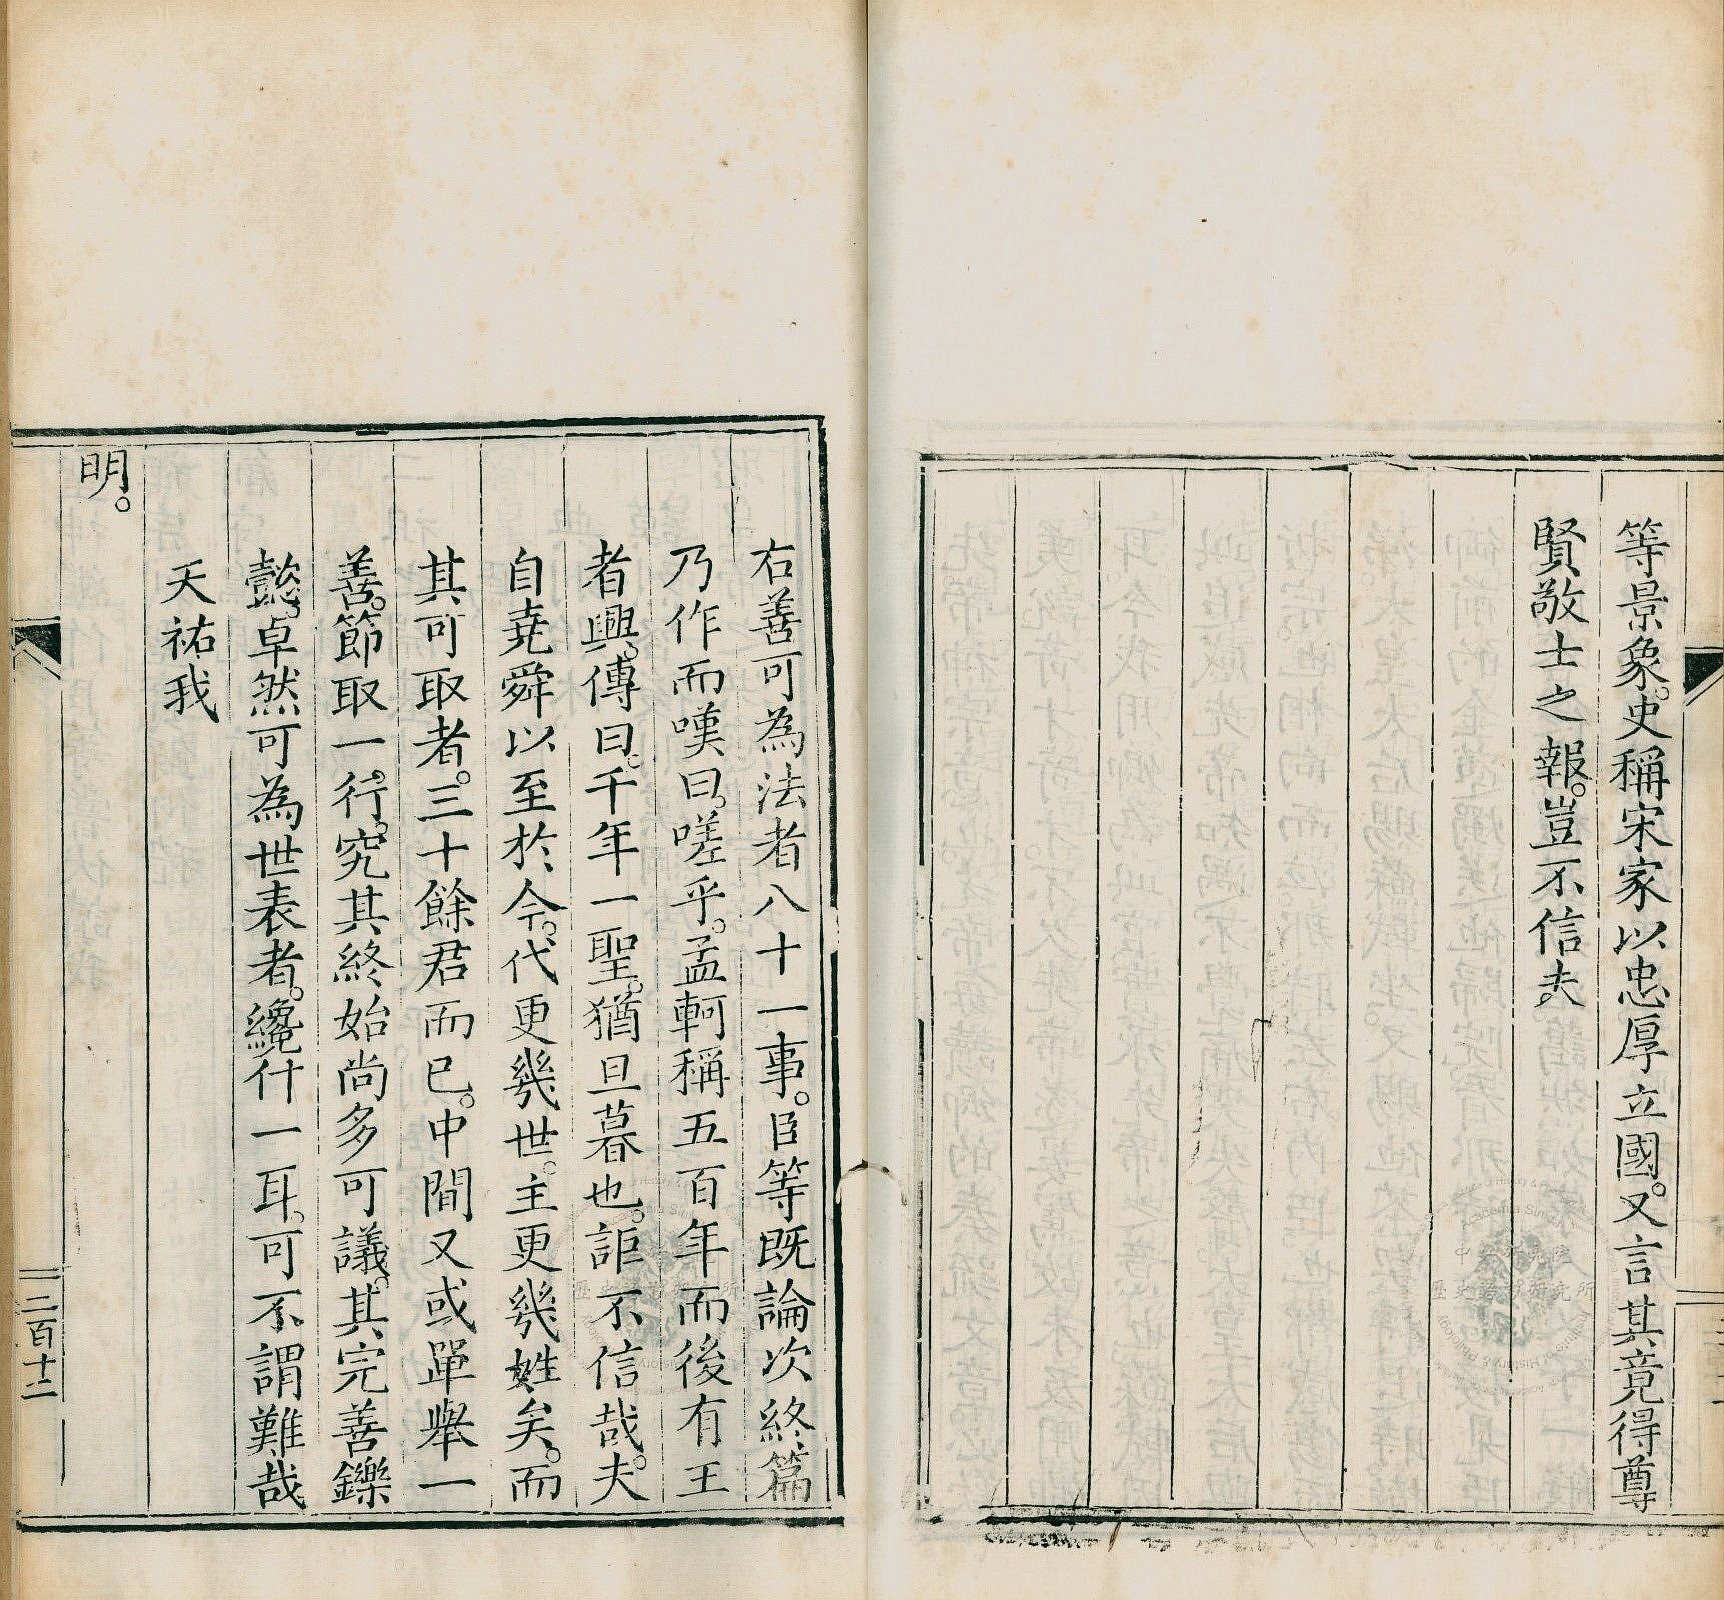 等景象。史稱宋家以忠厚立國。又言其竟得尊
賢敬士之報。豈不信夫
右善可為法者八十一事。臣等既論次終篇
乃作而嘆曰。嗟乎。孟軻稱五百年而後有王
者興。傳曰。千年一聖。猶旦暮也。詎不信哉。夫
自堯舜以至於今。代更幾世。主更幾姓矣。而
其可取者。三十餘君而已。中間又或單舉一
善。節取一行。究其終始尚多可議。其完善鑠
懿。卓然可為世表者。纔什一耳。可不謂難哉
天祐我
明。
二百十二